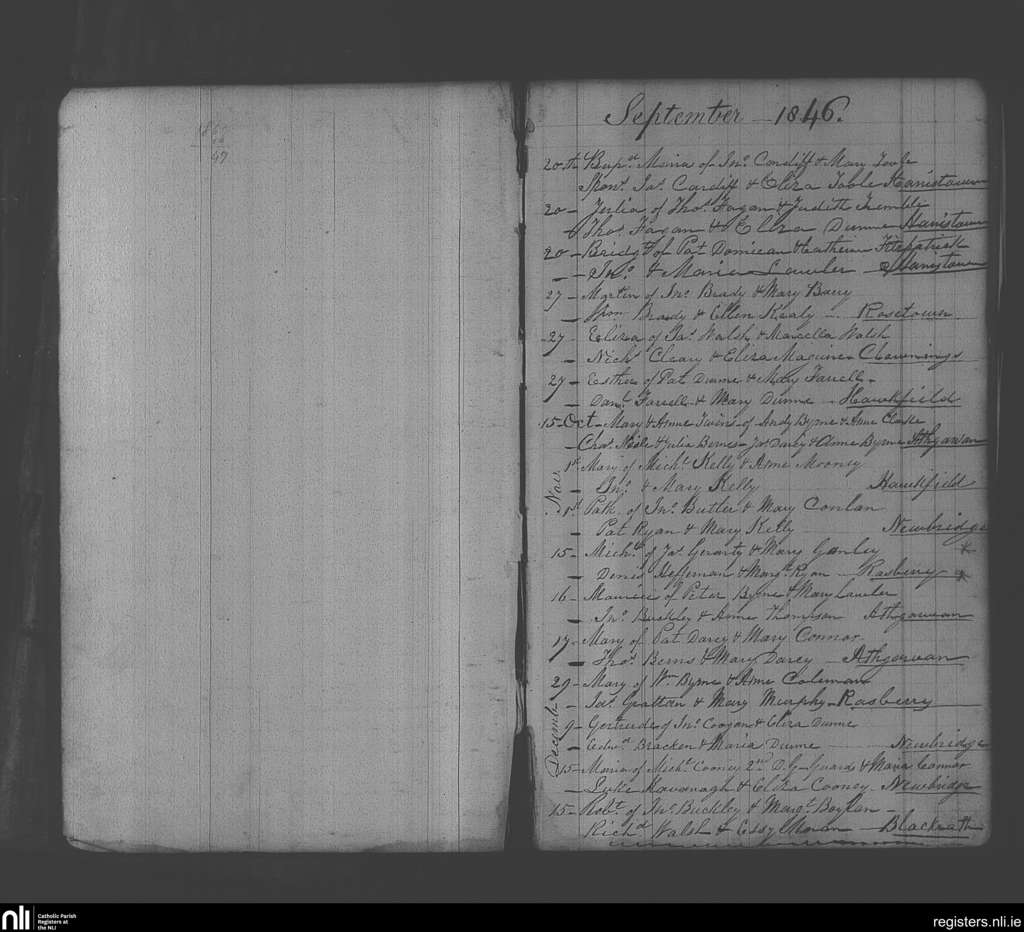 September 1846.
20th Bapt Maria of Jno Cardiff & Mary Toole
Spont Jas Cardiff & Eliza Toole Hanistown
20 - Julia of Thos Fagan & Judith Tremble
- Thos Fagan & Eliza Dunne Hanistown
20 - Bridgt of Pat Domican & Catheine Fitzpatrick
- Jno & Maria Lawler Hanistown
27 - Martin of Jno Brady & Mary Barry
- Brady & Ellen Kealy - Rosetown
27 - Eliza of Jas Walsh & Marcella Walsh
- Nichs Cleary & Eliza Maguire Clownings
27 - Esther of Pat Dunne & Mary Farrell -
- Danl Farrell & Mary Dunne - Hawkfield
15 - Oct - Mary & Anne Twins of Andy Byrne & Anne Clarke
- Chas & Julia Berns - Jas Darcy & Anne Byrne Athgarvan
Nov
1st Mary of Michl Kelly & Anne Mooney
- Jno & Mary Kelly Hawkfield
1st Patk of Jno Butler & Mary Conlan
- Pat Ryan & Mary Kelly Newbridge
15 - Michl of Jas Gerarty & Mary Ganley
- Denis Heffernan & Margt Ryan - Rasberry
16 - Maurice of Peter Byrne & Mary Lawler
- Jno Buckley & Anne Thomson Athgarvan
17 - Mary of Pat Darcy & Mary Connor
- Thos Berns & Mary Darcy - Athgarvan
29 - Mary of Wm Byrne & Anne Coleman
- Jas Grattan & Mary Murphy - Rasberry
Decemb
9 - Gertrude of Jno Coogan & Eliza Dunne
- Edwd Bracken & Maria Dunne Newbridge
15 - Maria of Michl Cooney 2nd D.G - Guard & Maria Connor
- Luke Kavanagh & Eliza Cooney - Newbridge
15 - Robt of Jno Buckley & Margt Boylan -
Richd Walsh & Essy Moran - Blackrath
nli
Catholic Parish
Registers at
the NLI
registers.nli.ie